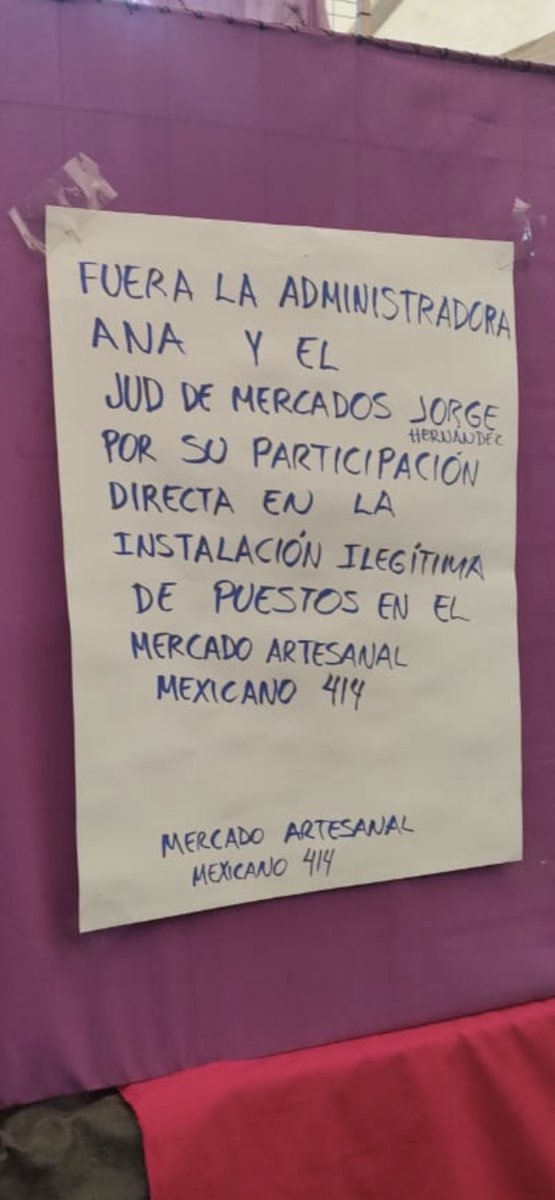 FUERA LA ADMINISTRADORA
ANA Y EL
JUD DE MERCADOS JORGE
HERNÁNDEZ
POR SU PARTICIPACIÓN
DIRECTA EN LA
INSTALACIÓN ILEGÍTIMA
DE PUESTOS EN EL
MERCADO ARTESANAL
MEXICANO 414
MERCADO ARTESANAL
MEXICANO 414